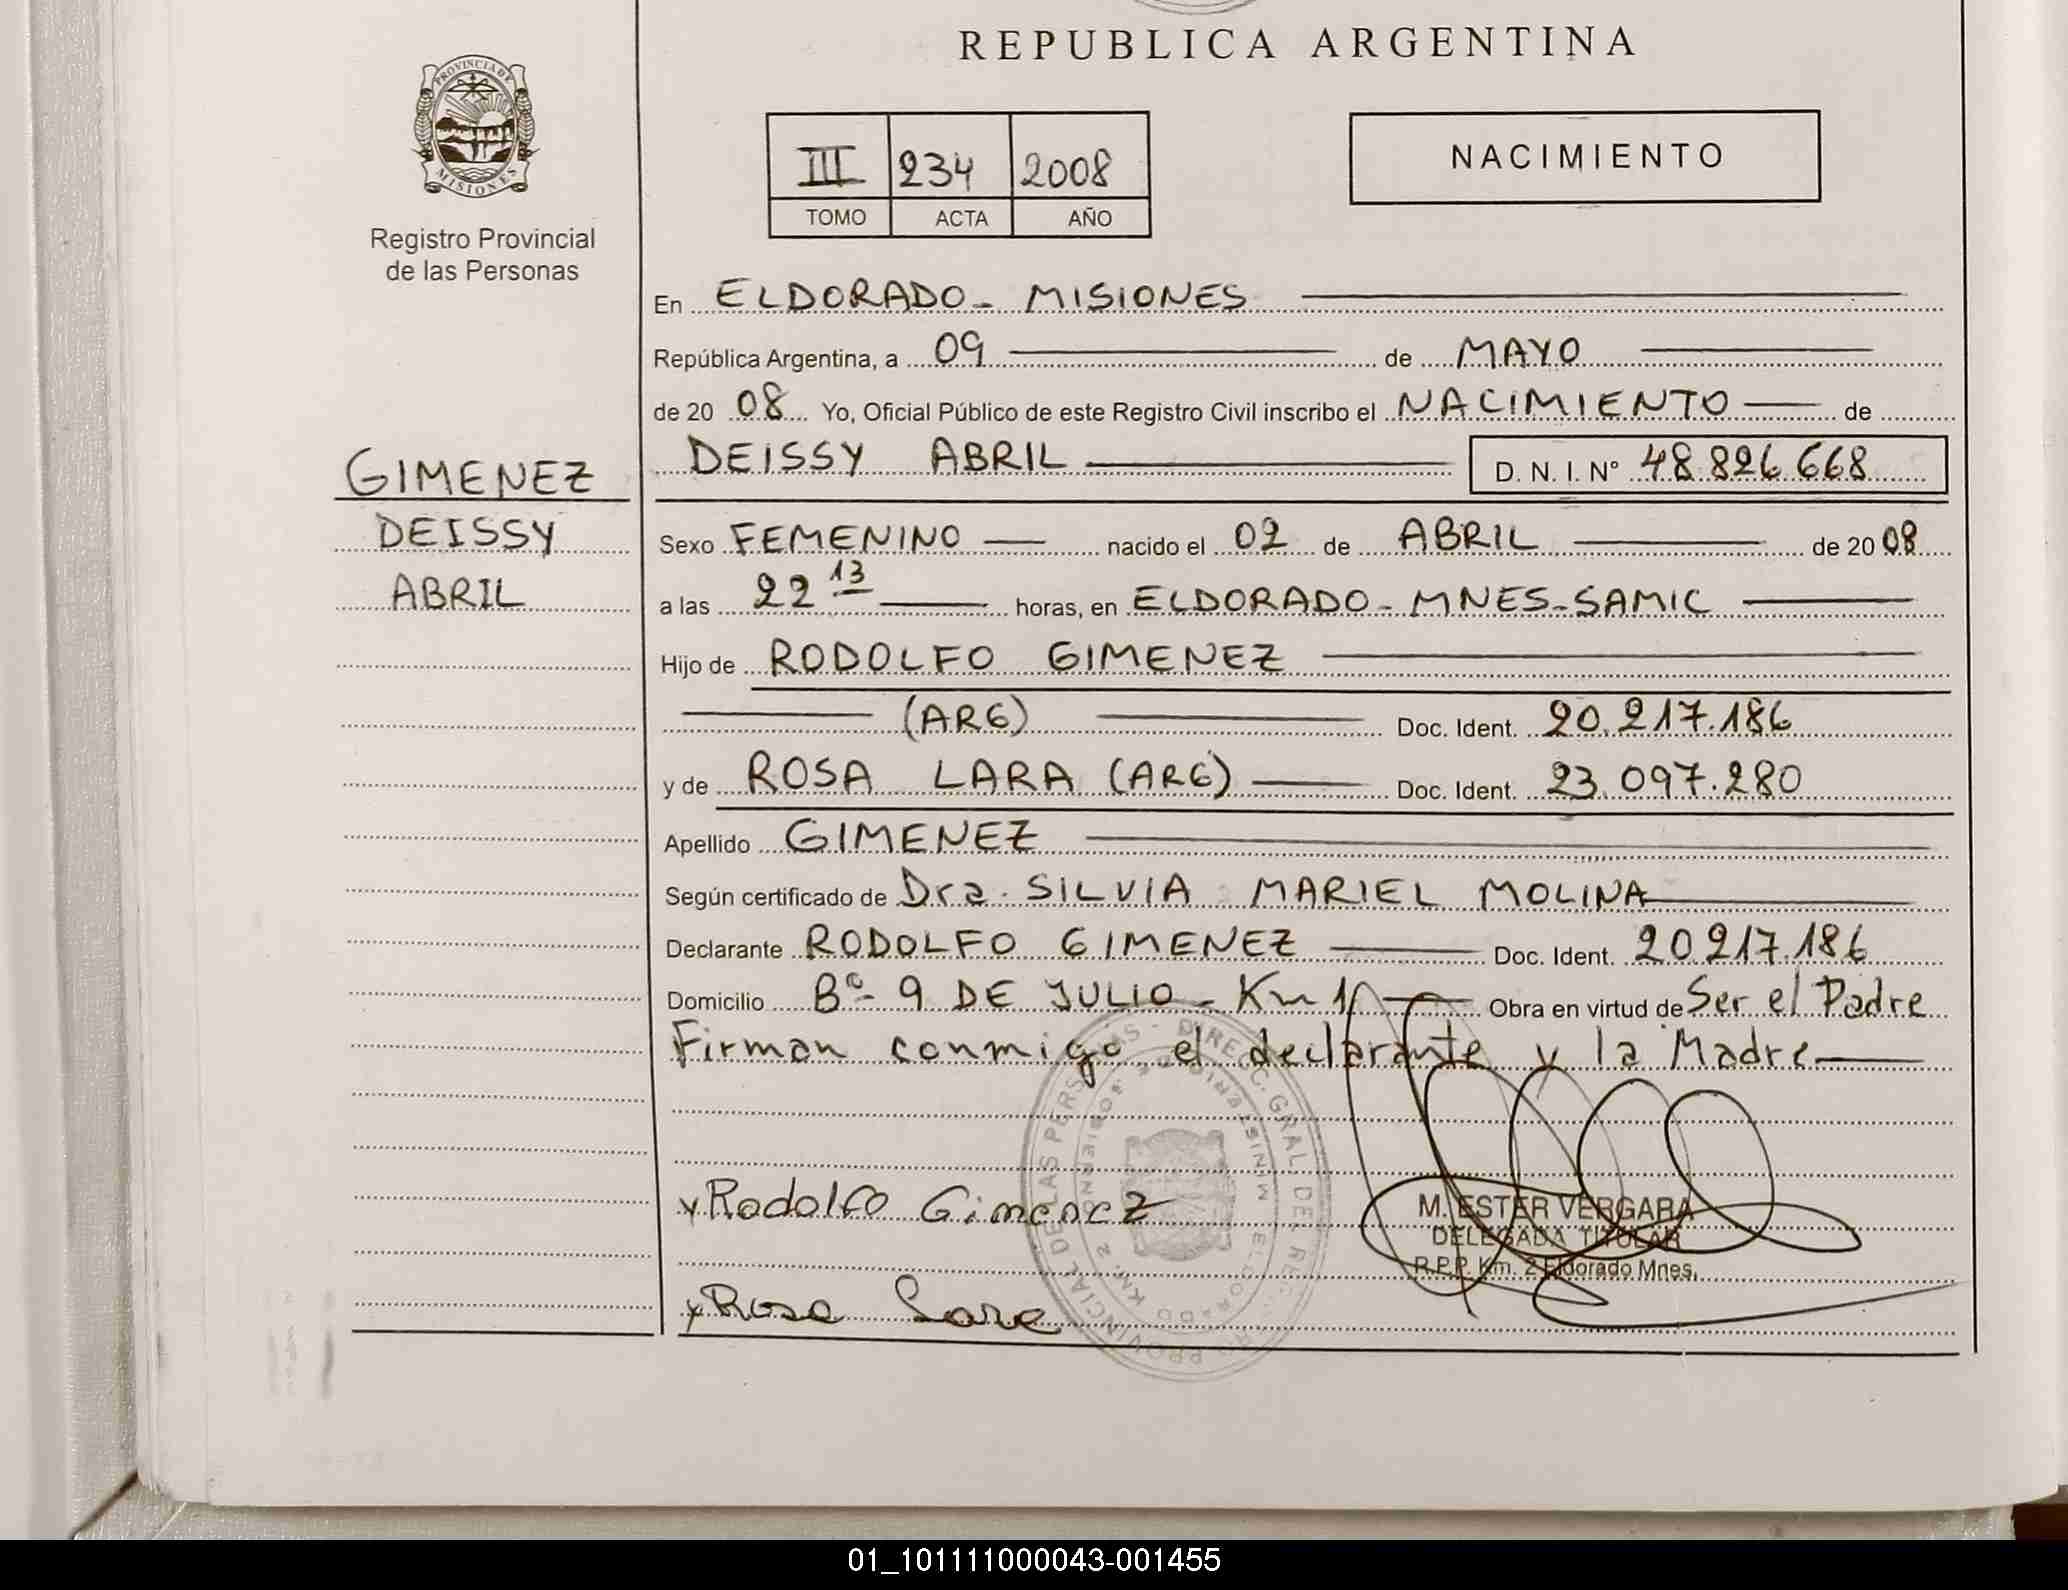 REPUBLICA ARGENTINA
PROVINCIA DE
MISIONES
Registro Provincial
de las Personas
III 234 2008
TOMO ACTA AÑO
NACIMIENTO
En ELDORADO - MISIONES
República Argentina, a 09 de MAYO
de 20 08 Yo, Oficial Público de este Registro Civil inscribo el NACIMIENTO de
DEISSY ABRIL D. N. I. Nº 48.826.668
GIMENEZ
DEISSY
ABRIL
Sexo FEMENINO nacido el 02 de ABRIL de 20 08
a las 22 13 horas, en ELDORADO - MNES - SAMIC
Hijo de RODOLFO GIMENEZ
(ARG) Doc. Ident. 20.217.186
y de ROSA LARA (ARG) Doc. Ident. 23.097.280
Apellido GIMENEZ
Según certificado de Dra. SILVIA MARIEL MOLINA
Declarante RODOLFO GIMENEZ Doc. Ident. 20.217.186
Domicilio Bº- 9 DE JULIO - Km 1 Obra en virtud de Ser el Padre
Firman conmigo el declarante y la Madre
x Rodolfo Gimenez
M. ESTER VERGARA
DELEGADA TITULAR
R.P.P. Km. 2 Eldorado Mnes.
x Rosa Lara
01_101111000043-001455